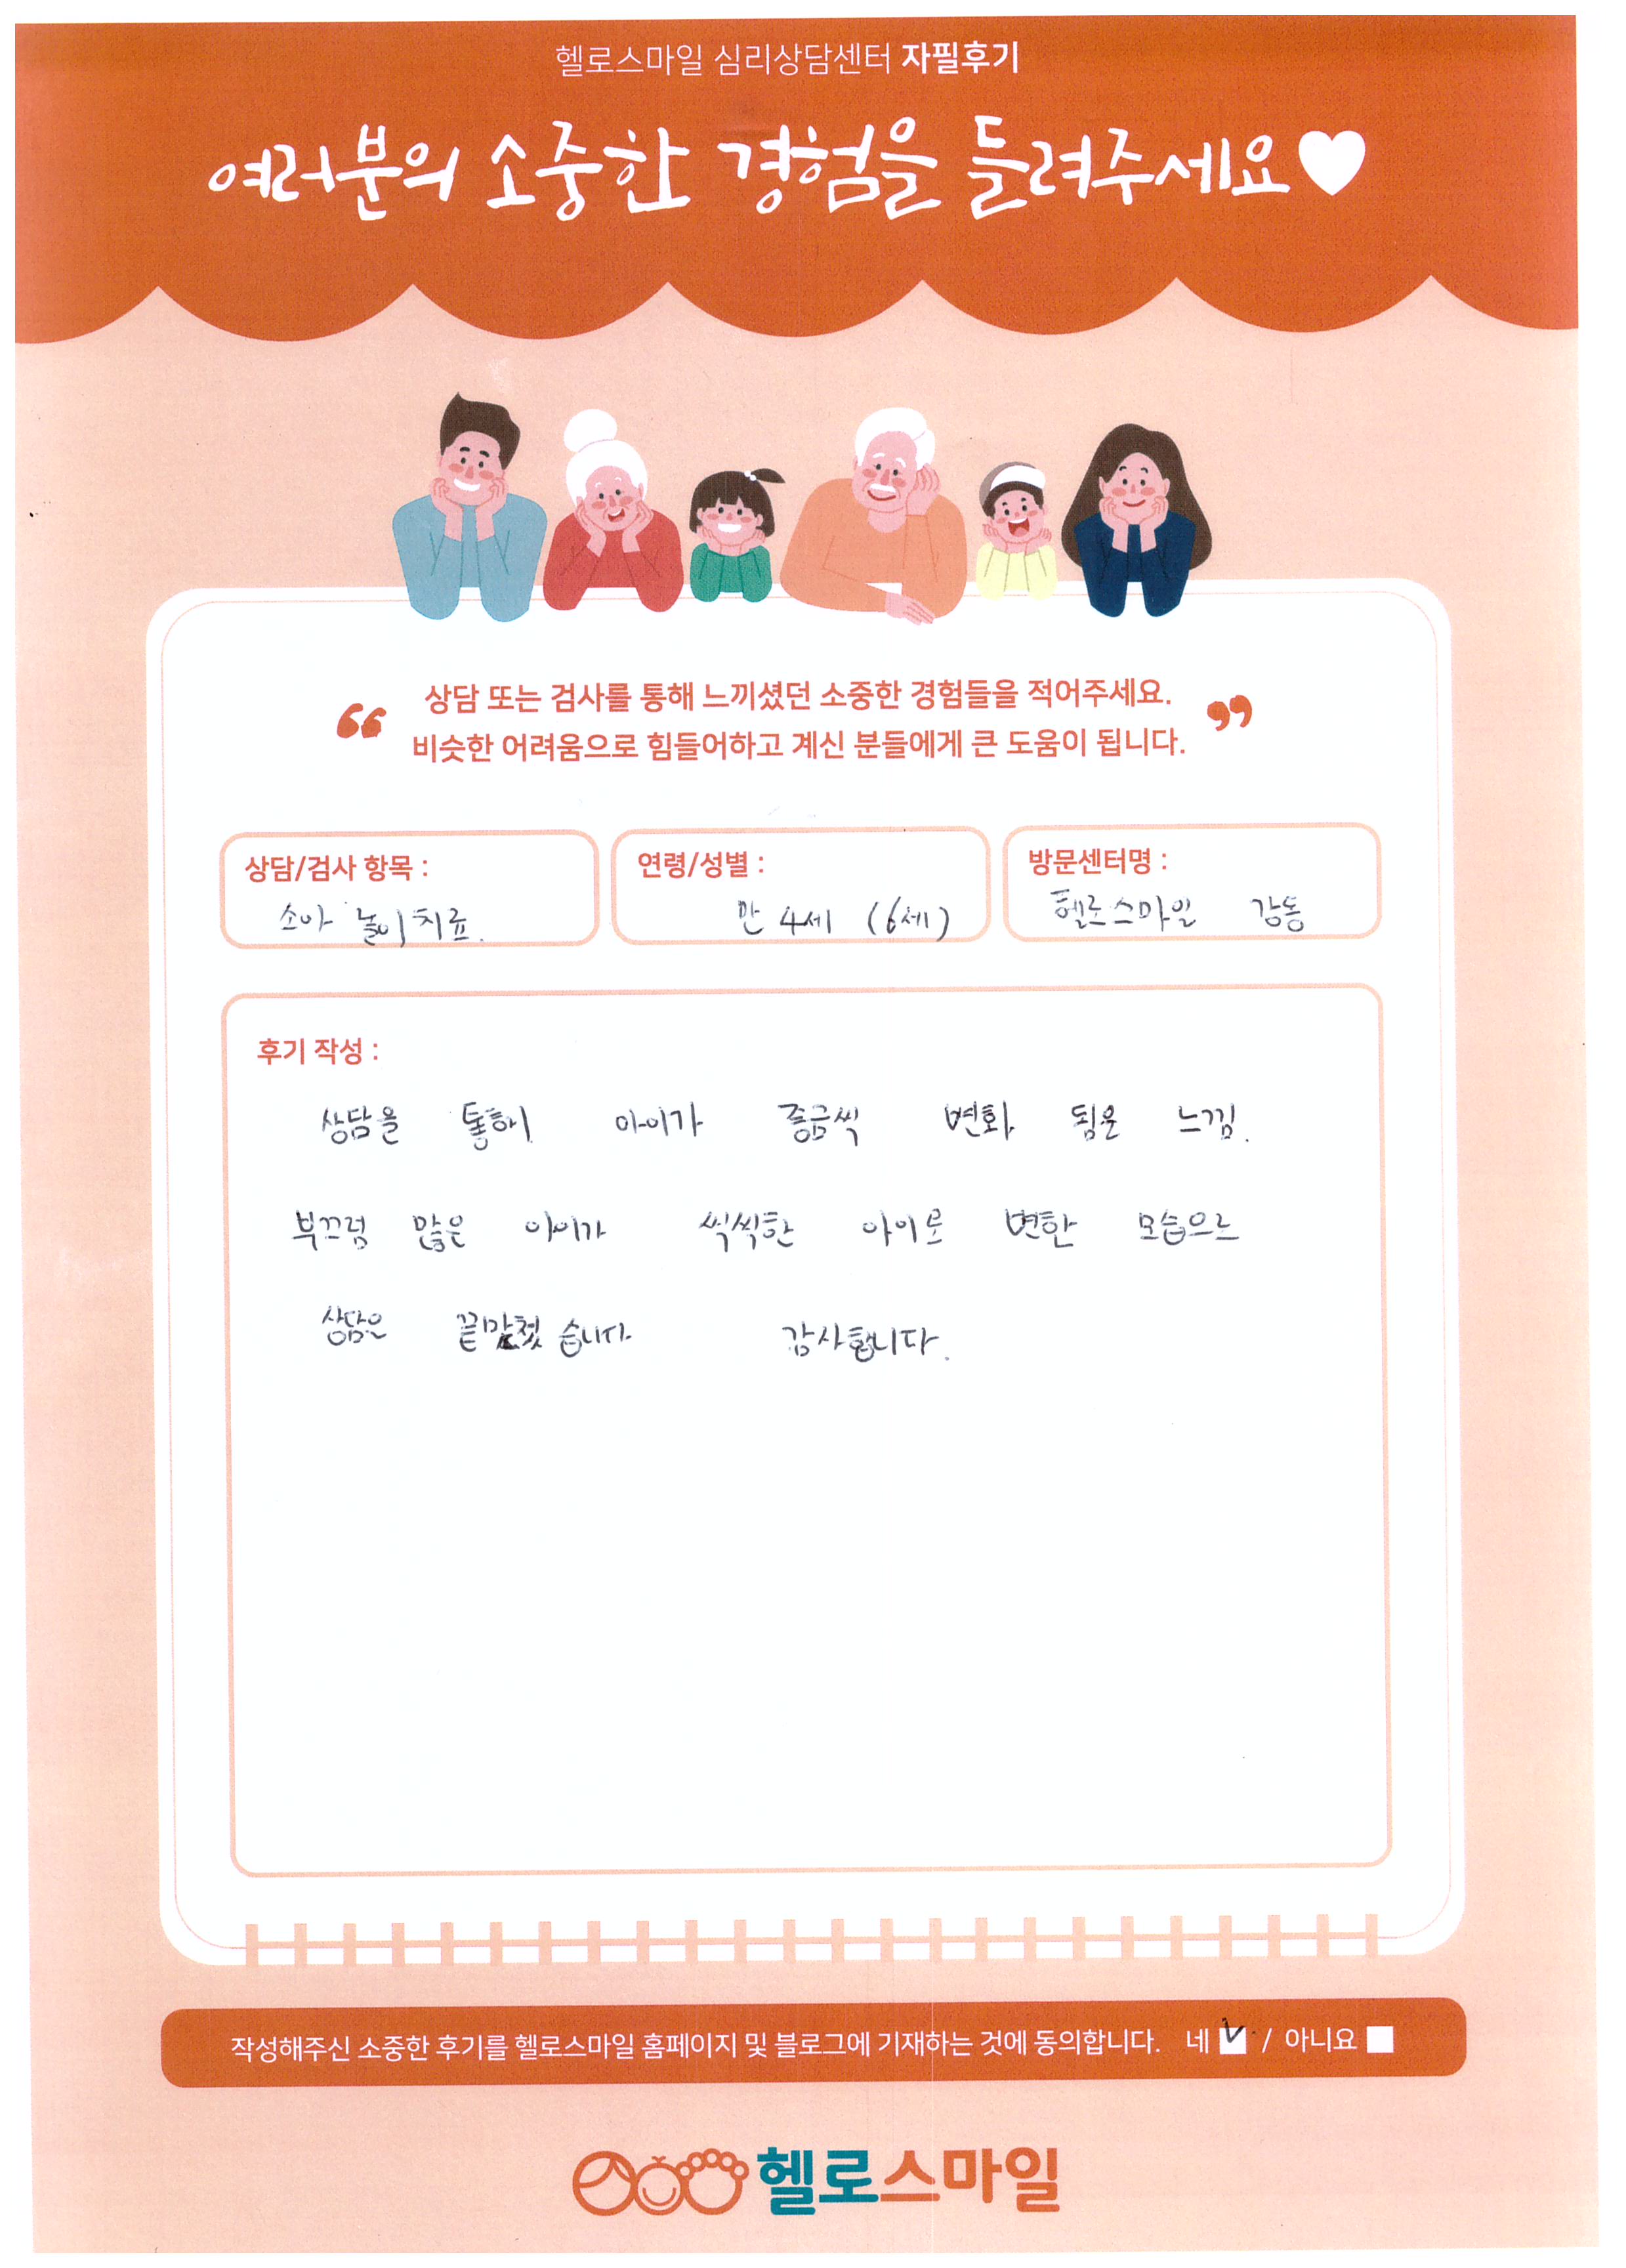 헬로스마일 심리상담센터 자필후기
여러분의 소중한 경험을 들려주세요
“ 상담 또는 검사를 통해 느끼셨던 소중한 경험들을 적어주세요. ”
비슷한 어려움으로 힘들어하고 계신 분들에게 큰 도움이 됩니다.
상담/검사 항목 :
소아 놀이치료.
연령/성별 :
만 4세 (6세)
방문센터명 :
헬로스마일 강동
후기 작성 :
상담을 통해 아이가 조금씩 변화 됨을 느낌.
부끄럼 많은 아이가 씩씩한 아이로 변한 모습으로
상담은 끝맞쳤습니다 감사합니다.
작성해주신 소중한 후기를 헬로스마일 홈페이지 및 블로그에 기재하는 것에 동의합니다. 네 / 아니요
헬로스마일